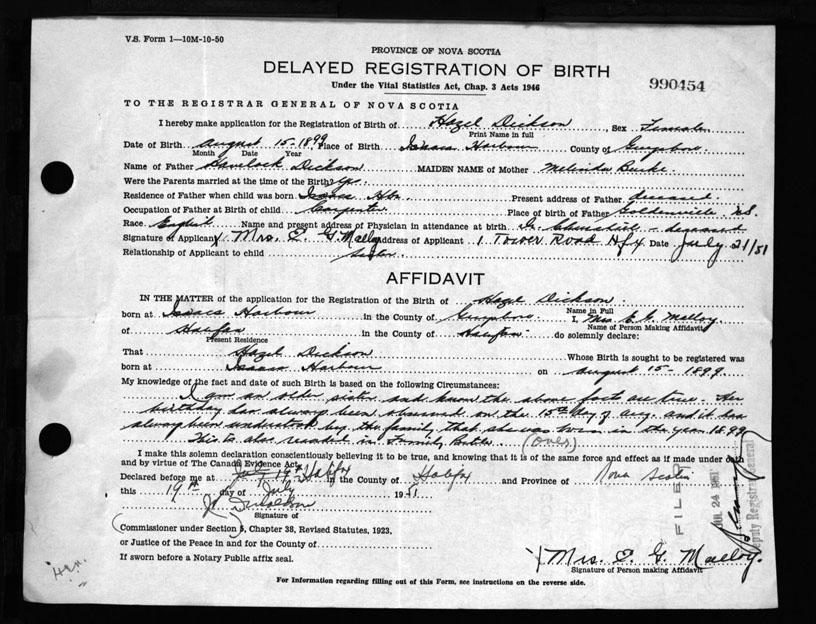 V.S. Form 1—10M-10-50
PROVINCE OF NOVA SCOTIA
DELAYED REGISTRATION OF BIRTH
990454
Under the Vital Statistics Act, Chap. 3 Acts 1946
TO THE REGISTRAR GENERAL OF NOVA SCOTIA
I hereby make application for the Registration of Birth of Hazel Dickson, Sex Female
Print Name in full
Date of Birth August 15-1899, Place of Birth Isaacs Harbour County of Guysboro
Month Date Year
Name of Father Dickson MAIDEN NAME of Mother Melinda Burke
Were the Parents married at the time of the Birth Yes
Residence of Father when child was born Isaacs Hbr. Present address of Father deceased
Occupation of Father at Birth of child Carpenter Place of Birth of Father Goldenville N.S.
Race English Name and present address of Physician in attendance at birth Dr. - deceased
Signature of Applicant X Mrs. E. G. Malloy Address of Applicant 1 Tower Road Hfx Date July 21/51
Relationship of Applicant to child Sister
AFFIDAVIT
IN THE MATTER of the application for the Registration of the Birth of Hazel Dickson
Name in Full
born at Isaacs Harbour in the County of Guysboro I, Mrs. E. G. Malloy
Name of Person Making Affidavit
of Halifax in the County of Halifax do solemnly declare:
Present Residence
That Hazel Dickson Whose Birth is sought to be registered was
born at Isaacs Harbour on August 15-1899.
My knowledge of the fact and date of such Birth is based on the following Circumstances:
I am an older sister and know the above facts are true. Her
birthday has always been observed on the 15th day of Aug. and it has
always been understood by the family that she was born in the year 1899
This is also recorded in Family Bible. (over)
I make this solemn declaration conscientiously believing it to be true, and knowing that it is of the same force and effect as if made under oath
and by virtue of The Canada Evidence Act.
Declared before me at Halifax in the County of Halifax and Province of Nova Scotia
this 19th day of July 1951
Signature of
Commissioner under Section 5, Chapter 38, Revised Statutes, 1923.
or Justice of the Peace in and for the County of
If sworn before a Notary Public affix seal.
FILED
JUL 24 1951
Deputy Registrar General
X Mrs. E. G. Malloy.
Signature of Person making Affidavit
For Information regarding filling out of this Form, see instructions on the reverse side.